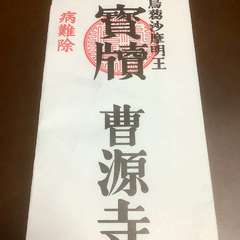 烏蒭沙摩明王
寳牘
曹源寺
病難除